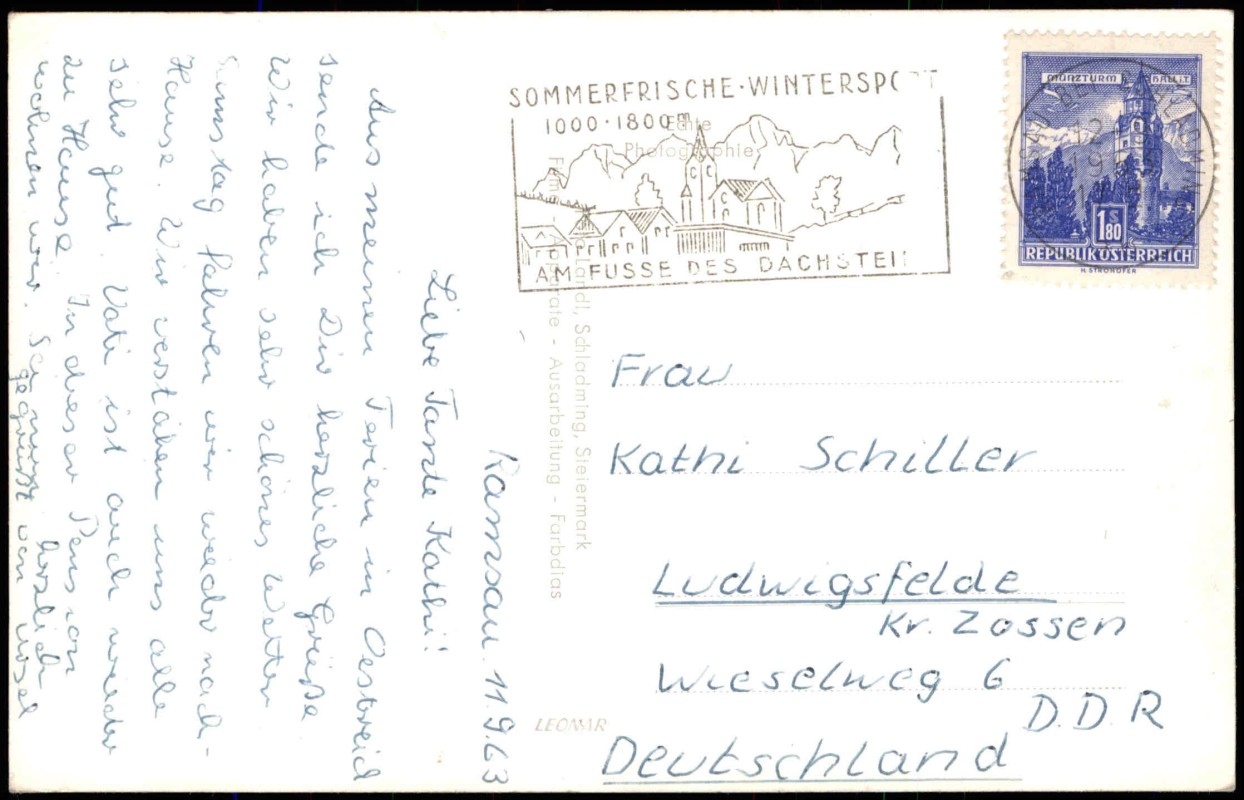 Ramsau 11.9.63
Liebe Tante Kathi!
Aus meinen Ferien in Oestreich
sende ich Dir herzliche Grüße
Wir haben sehr schönes Wetter
Samstag fahren wir wieder nach-
Hause. Wir verstehen uns alle
sehr gut. Vati ist auch wieder
zu Hause. In dieser Pension
wohnen wir. Sei herzlich
gegrüßt von
SOMMERFRISCHE·WINTERSPORT
1000·1800 m
AM FUSSE DES DACHSTEIN
Echte
Photographie
Schladming, Steiermark
Apparate - Ausarbeitung - Farbdias
LEONAR
MÜNZTURM HALL i.T.
1 S 80
REPUBLIK ÖSTERREICH
H. STROHOFER
Frau
Kathi Schiller
Ludwigsfelde
Kr. Zossen
Wieselweg 6
D.D R
Deutschland